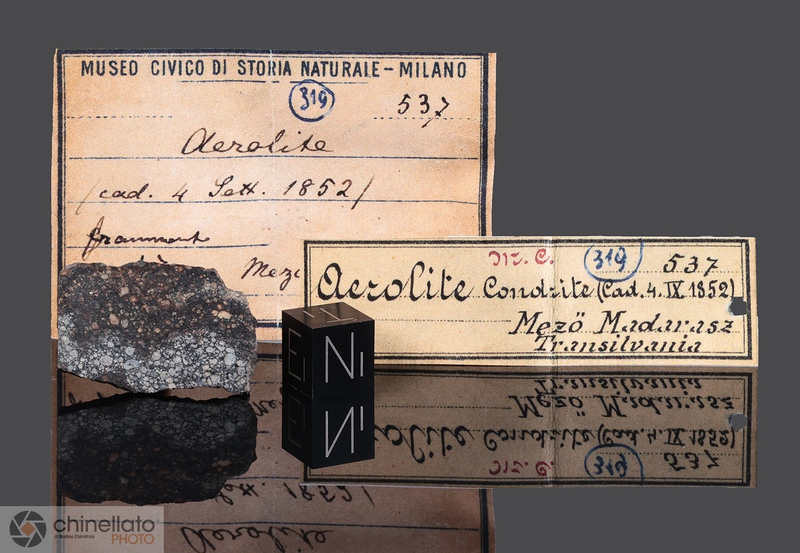 MUSEO CIVICO DI STORIA NATURALE - MILANO
319
537
Aerolite
(cad. 4 Sett. 1852)
frammento
Mez
M. C.
319
537
Aerolite Condrite (Cad. 4. IX. 1852)
Mezö Madarasz
Transilvania
N
chinellato
PHOTO
di Matteo Chinellato